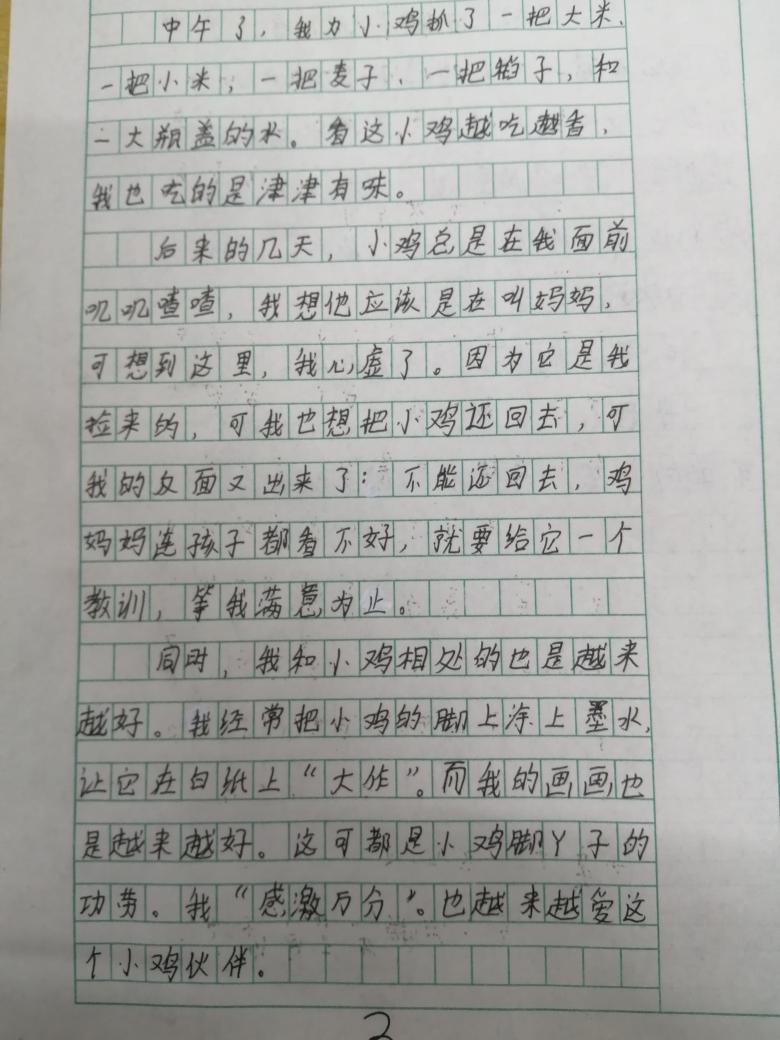 中午了，我为小鸡抓了一把大米、
一把小米，一把麦子、一把稻子，和
一大瓶盖的水。看这小鸡越吃越香，
我也吃的是津津有味。
后来的几天，小鸡总是在我面前
叽叽喳喳，我想他应该是在叫妈妈，
可想到这里，我心虚了。因为它是我
捡来的，可我也想把小鸡还回去，可
我的反面又出来了：不能还回去，鸡
妈妈连孩子都看不好，就要给它一个
教训，等我满意为止。
同时，我和小鸡相处的也是越来
越好。我经常把小鸡的脚上涂上墨水，
让它在白纸上“大作”。而我的画画也
是越来越好。这可都是小鸡脚丫子的
功劳。我“感激万分”。也越来越爱这
个小鸡伙伴。
2